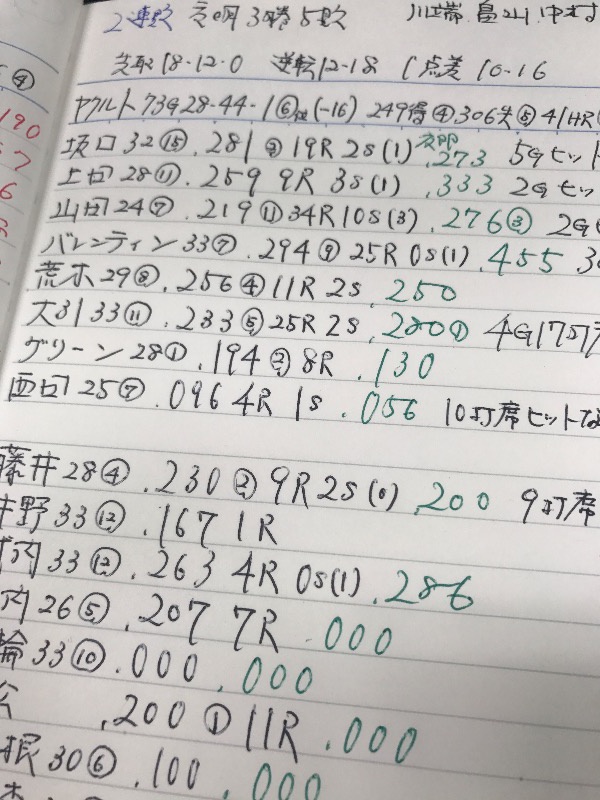 2連敗 交流戦3勝5敗 川端 畠山 中村
先取18-12-0 逆転12-18 1点差10-16
ヤクルト 73G28-44-1⑥位(-16) 249得④306失⑤41HR
坂口32⑮.281②19R2S(1) 交流.273 5Gヒット
上田28⑪.259 9R 3S(1) .333 2Gヒッ
山田24⑦.219⑪34R10S(3) .276③ 2G
バレンティン33⑦.294⑨25R0S(1).455
荒木29⑧.256④11R2S .250
大引33⑪.233⑤25R2S .280① 4G17打
グリーン28①.194②8R .130
西田25⑦.096 4R 1S .056 10打席ヒットな
藤井28④.230②9R2S(0) .200 9打席
野33⑫.167 1R
内33⑫.263 4R 0S(1) .286
26⑤.207 7R .000
輪33⑩.000 .000
.200①11R .000
根30⑥.100 .000